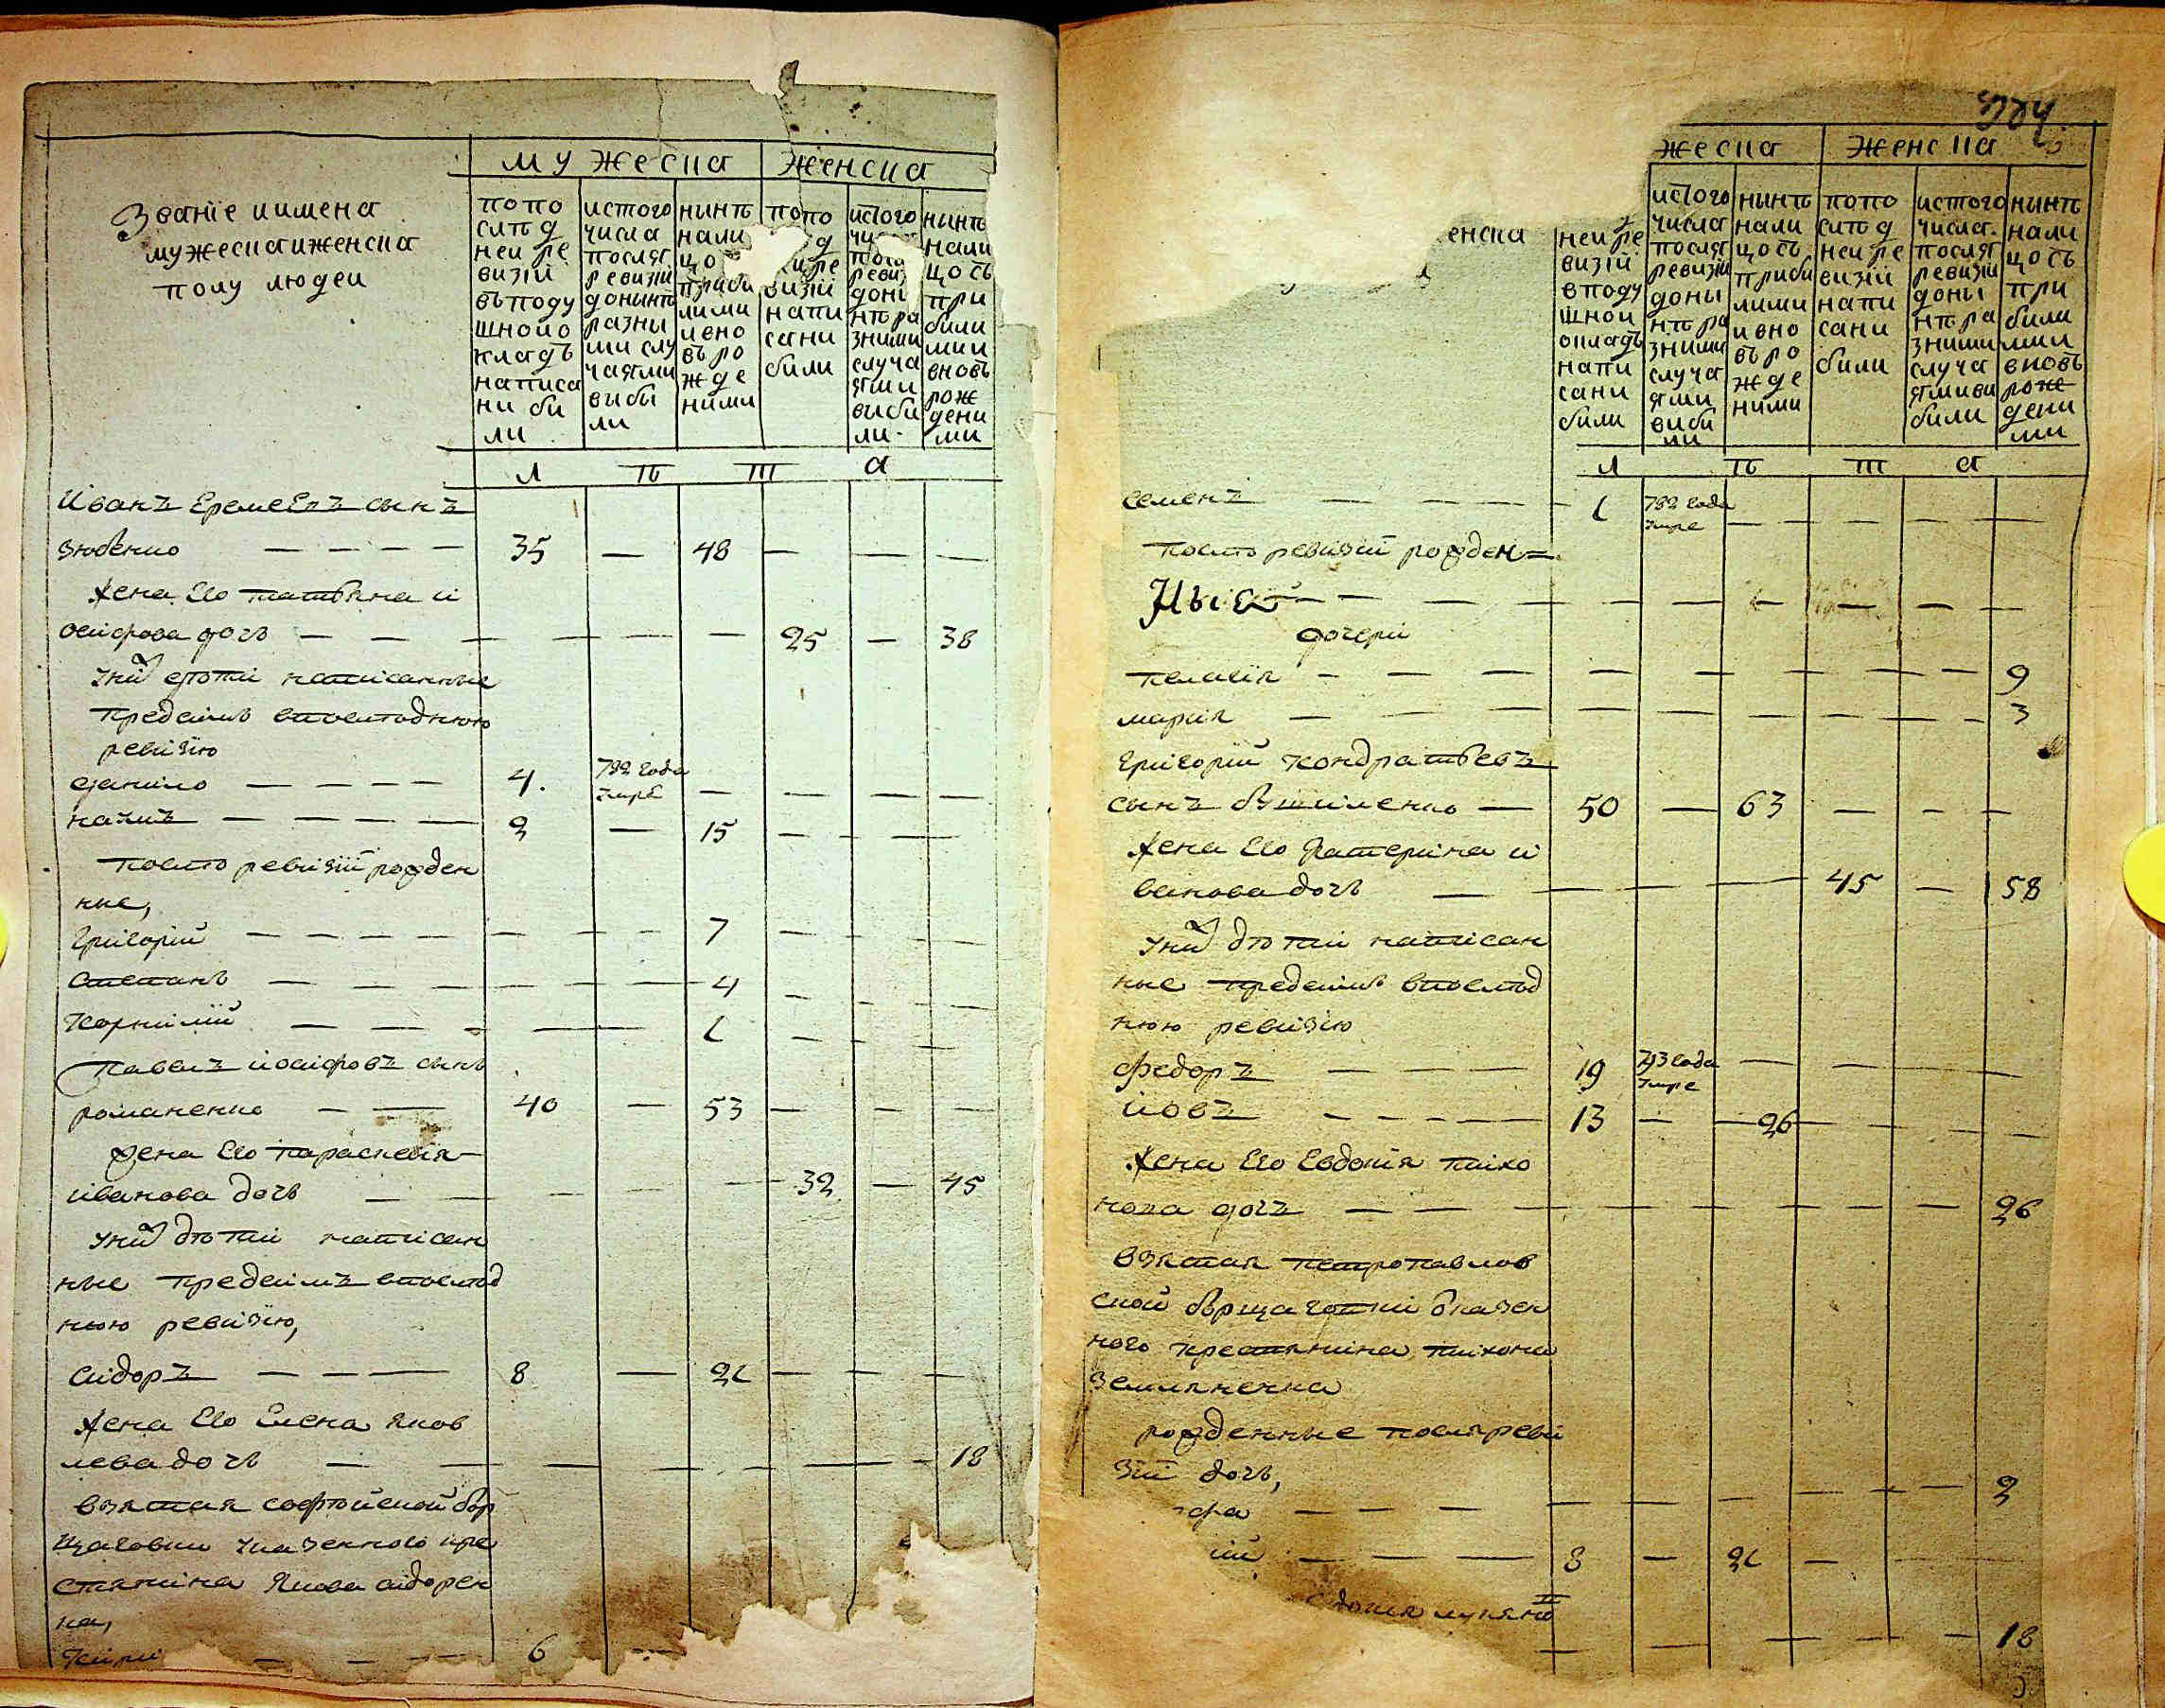 мужеска женска
Званіе иимена
мужескаиженска
полу людеи
попо
слѣд
неи ре
визіи
въподу
шнойо
кладъ
написа
ни би
ли
истого
числа
послѣ
ревизіи
донинѣ
разны
ми слу
чаями
выбы
ли
нинѣ
нали
цо
приби
лими
ивно
въ ро
жде
ними
попо
д
и ре
визіи
напи
сани
били
истого
чи
посл
реви
дони
нѣ ра
зними
случа
ями
выби
ли
нинѣ
нали
цосъ
при
били
ми и
вновъ
рож
дени
ми
л ѣ т а
Иванъ Еремеевъ сынъ
зюбенко — 35 — 48 — — —
жена Его татьяна и
осифова дочь — 25 — 38
унихъ дѣти написанные
предеимъ впослѣднюю
ревизію
данило — 4. 792 года умре — — — —
калин — 2 — 15 — — —
послѣ ревизіи рожден
ные,
григорій — 7 — — —
степанъ — 4 — — —
корнилій — 1 — — —
павелъ иосифовъ сынъ
романенко — 40 — 53 — — —
жена Его параскевія
иванова дочь — 32 — 45
унихъ дѣти написан
ные предеимъ впослѣд
нюю ревизію,
сидоръ — 8 — 21 — — —
жена Его Елена яков
лева дочь — 18
взятая софѣйской бор
щаговки казенного кре
стянина якова сидорен
ка,
6
324
жеска женска
енска
неи ре
визіи
вподу
шнои
окладъ
напи
сани
били
истого
числа
послѣ
ревизіи
дони
нѣ ра
зними
случа
ями
виби
ли
нинѣ
нали
цосъ
приби
лими
ивно
въ ро
жде
ними
попо
слѣд
неи ре
визіи
напи
сани
били
истого
числа
послѣ
ревизіи
дони
нѣ ра
зними
случа
ямиви
били
нинѣ
нали
цосъ
при
били
ми и
вновъ
рож
дени
ми
л ѣ т а
семенъ — 1 792 года умре — — — —
послѣ ревизіи рожден=
ные
дочери
пелагія — 9
марія — 3
григорій кондратьевъ
сынъ — 50 — 63 — — —
жена Его Катерина и
ванова дочь — 45 — 58
унихъ дѣти написан
ные предеимъ впослѣд
нюю ревизію
федоръ — 19 793 года умре — — — —
иовъ — 13 — 26 — — —
жена Его Евдокія тихо
нова дочъ — 26
взятая петропавлов
ской борщаговки казен
ного крестянина тихона
землянечка
рожденные послѣреви
зіи дочь,
фа — 2
ій — 8 — 21 —
докія лукяно
— 18